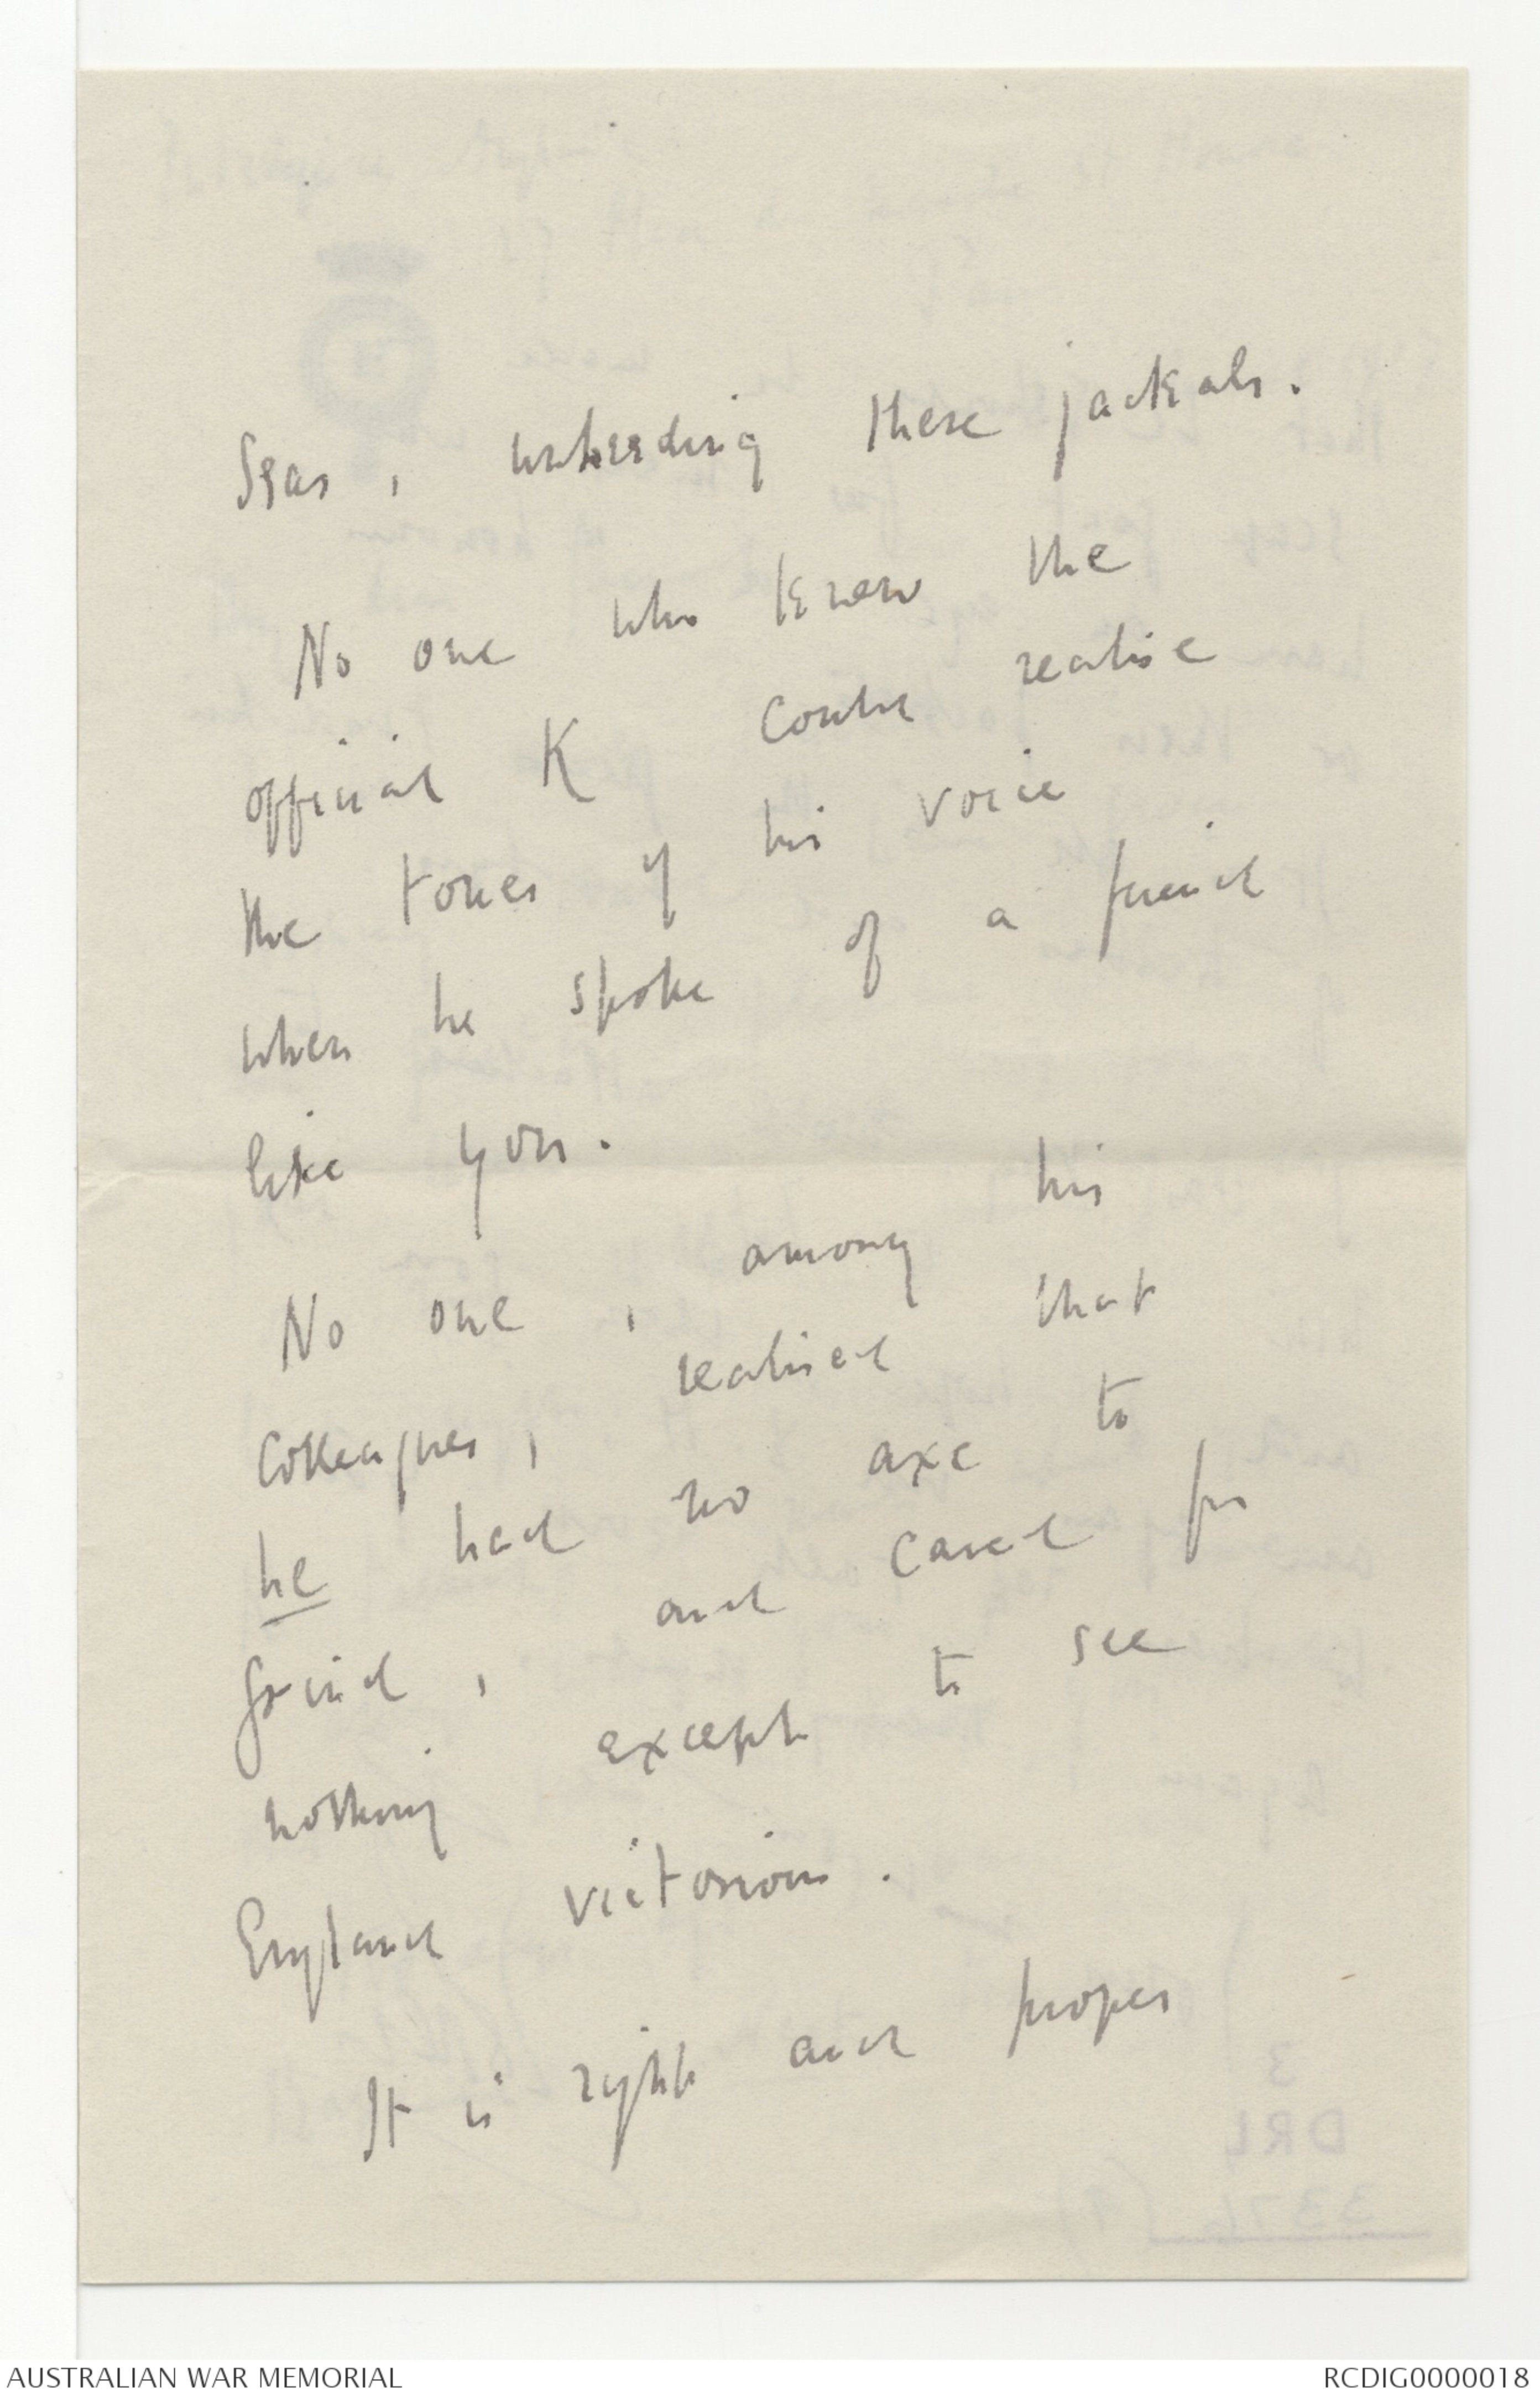 Seas, unheeding these jackals.
No one who knew the
official K could realise
the tones of his voice
when he spoke of a friend
like you.
No one, among his
colleagues, realised that
he had no axe to
grind, and cared for
nothing except to see
England victorious.
It is right and proper
3
DRL
3376 (9)
AUSTRALIAN WAR MEMORIAL
RCDIG0000018